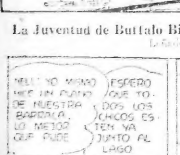 La Juventud de Buffalo Bi
YO MISMO
HICE UN PLANO
DE NUESTRA
BARRACA
LO MEJOR
QUE PUDE
ESPERO
QUE TO-
DOS LOS
CHICOS ES-
TEN YA
JUNTO AL
LAGO